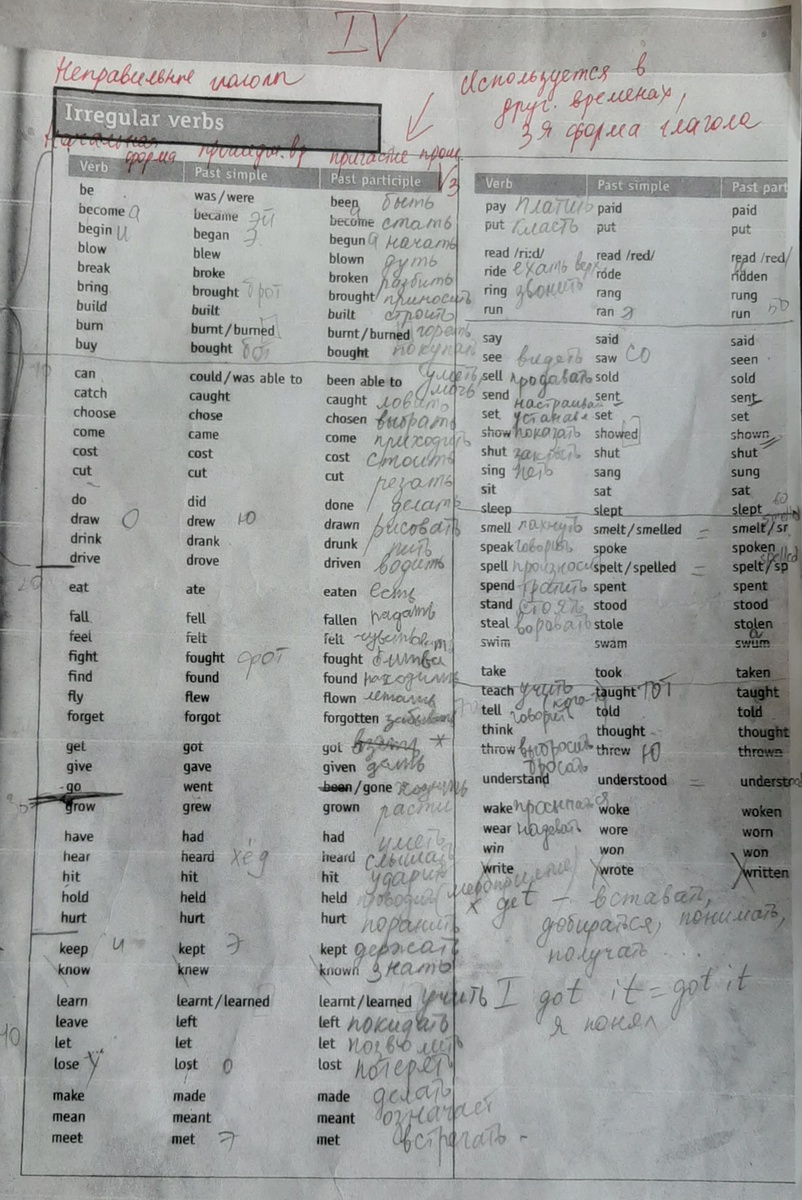 IV
Неправильные глаголы
Используется в
друг. временах,
3я форма глагола
Irregular verbs
Начальная форма прошедш. вр причастие прош.
Verb Past simple Past participle V3
be was/were been быть
become а became эй become стать
begin и began э begun а начать
blow blew blown дуть
break broke broken разбить
bring brought брот brought приносить
build built built строить
burn burnt/burned burnt/burned гореть
buy bought бот bought покупать
can could/was able to been able to уметь, мочь
catch caught caught ловить
choose chose chosen выбрать
come came come приходить
cost cost cost стоить
cut cut cut резать
do did done делать
draw О drew Ю drawn рисовать
drink drank drunk пить
drive drove driven водить
20
eat ate eaten есть
fall fell fallen падать
feel felt felt
fight fought фот fought битва
find found found находить
fly flew flown летать
forget forgot forgotten забывать
get got got взять *
give gave given дать
go went been/gone ходить
grow grew grown расти
have had had иметь
hear heard хёд heard слышать
hit hit hit ударить
hold held held проводить (мероприятие)
hurt hurt hurt поранить
keep и kept э kept держать
know knew known знать
learn learnt/learned learnt/learned учить
leave left left покидать
let let let позволить
lose У lost о lost потерять
make made made делать
mean meant meant означает
meet met э met встречать -
Verb Past simple Past part
pay платить paid paid
put класть put put
read /ri:d/ read /red/ read /red/
ride ехать верх rode ridden
ring звонить rang rung
run ran э run
say said said
see видеть saw СО seen
sell продавать sold sold
send sent sent
set настраивать устанавл set set
show показать showed shown
shut закрыть shut shut
sing петь sang sung
sit sat sat
sleep slept slept
smell пахнуть smelt/smelled smelt/sm
speak говорить spoke spoken
spell произносить spelt/spelled spelt/sp
spend тратить spent spent
stand стоять stood stood
steal воровать stole stolen
swim swam swum
take took taken
teach учить (кого- taught ТОТ taught
tell говорит told told
think thought thought
throw выбросить бросать threw Ю thrown
understand understood understo
wake просыпатся woke woken
wear надевать wore worn
win won won
write wrote written
* get – вставать,
добираться, понимать,
получать ...
I got it = got it
я понял